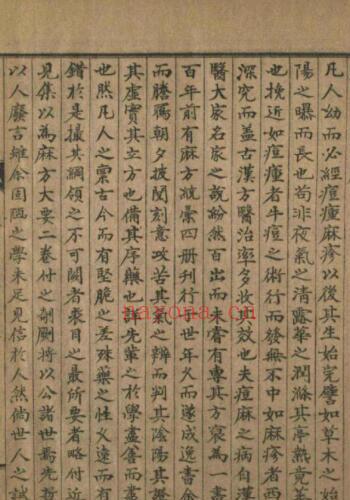 凡人幼而必經痘瘡麻疹以後其生始完譬如草木之始
陽之曝而長也苟非夜氣之清露華之潤滋其亭竟
也挽近如痘瘡者牛痘之術行而發無不中如麻疹者西
深究而盖古漢方醫治率多收其效也夫痘麻之病自漢
醫大家名家之說紛然百出而未嘗有專其方裒為書
百年前有麻方彙四册刊行于世年久而遂成逸書余
而謄寫朝夕披閱刻意攻苦其氣之辨而判其陰陽其
其虛實其立方也備其序藥也詳先輩之於學盡善而
也然凡人之禀古今而有堅脆之差殊藥之性遠而有
錯於是撮其綱領之不可闕者表目之最所要者略付近
見集以為麻方大要二卷付之剞劂將以公諸世焉先哲
以人廢言雖余固陋之學未足見信於人然倘世人之試